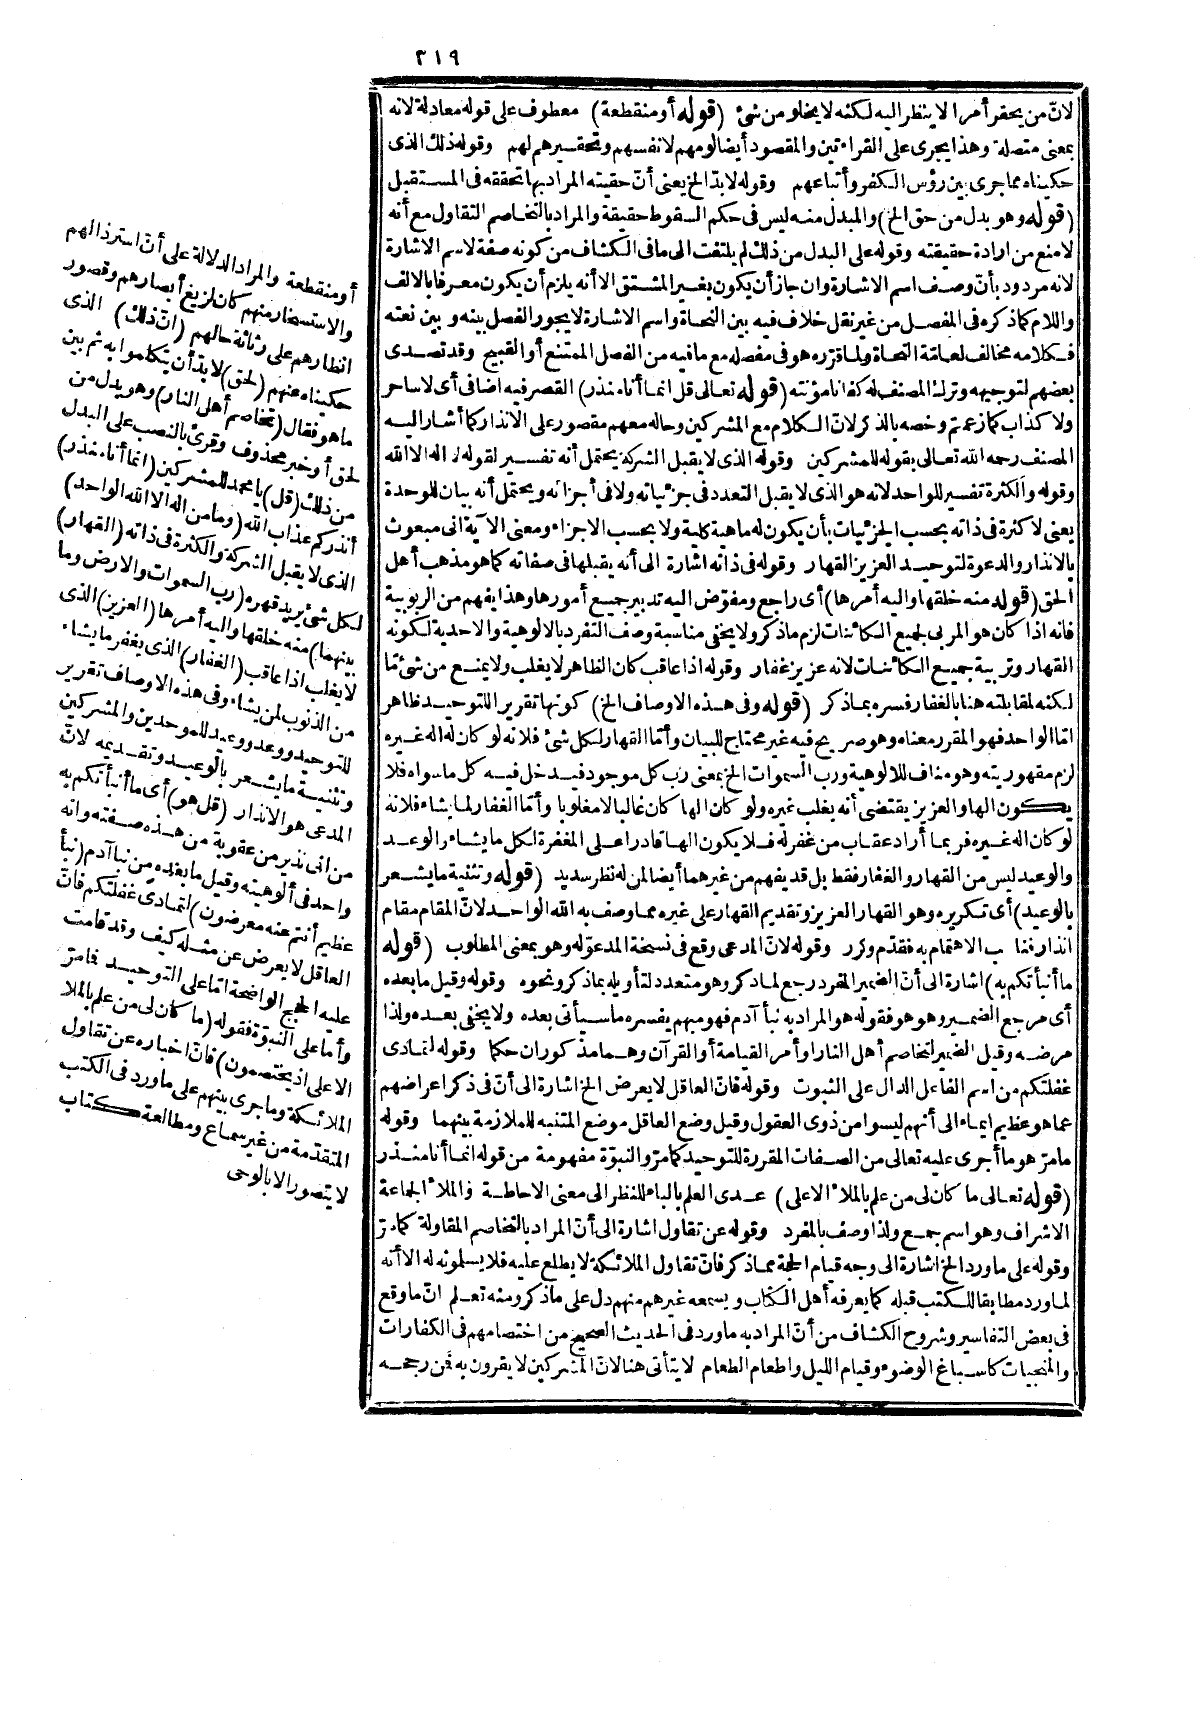 ٣١٩
لانّ من يحقر أمرا لا ينظر اليه لكنه لا يخلو من شئ (قوله أو منقطعة) معطوف على قوله معادلة لانه
بمعنى متصلة وهذا يجرى على القراءتين والمقصود أيضا لومهم لانفسهم وتحقيرهم لهم وقوله ذلك الذى
حكيناه مما جرى بين رؤس الكفر وأتباعهم وقوله لا بدّ الخ يعنى أنّ حقيته المراد بها تحققه فى المستقبل
(قوله وهو بدل من حق الخ) والمبدل منه ليس فى حكم السقوط حقيقة والمراد بالتخاصم التقاول مع أنه
لا منع من ارادة حقيقته وقوله على البدل من ذلك لم يلتفت الى ما فى الكشاف من كونه صفة لاسم الاشارة
لانه مردود بأنّ وصف اسم الاشارة وان جاز أن يكون بغير المشتق الا أنه يلزم أن يكون معرفا بالالف
واللام كما ذكره فى المفصل من غير نقل خلاف فيه بين النحاة واسم الاشارة لا يجوز الفصل بينه وبين نعته
فكلامه مخالف لعامّة النحاة ولما قرّره هو فى مفصله مع ما فيه من الفصل الممتنع أو القبيح وقد تصدى
بعضهم لتوجيهه وترك المصنف له كفانا مؤنته (قوله تعالى قل انما أنا منذر) القصر فيه اضافى أى لا ساحر
ولا كذاب كما زعمتم وخصه بالذكر لانّ الكلام مع المشركين وحاله معهم مقصور على الانذار كما أشار اليه
المصنف رحمه الله تعالى بقوله للمشركين وقوله الذى لا يقبل الشركة يحتمل أنه تفسير لقوله لا اله الا الله
وقوله والكثرة تفسير للواحد لانه هو الذى لا يقبل التعدد فى جزئياته ولا فى أجزائه ويحتمل أنه بيان للوحدة
يعنى لا كثرة فى ذاته بحسب الجزئيات بأن يكون له ماهية كلية ولا بحسب الاجزاء ومعنى الآية انى مبعوث
بالانذار والدعوة لتوحيد العزيز القهار وقوله فى ذاته اشارة الى أنه يقبلها فى صفاته كما هو مذهب أهل
الحق (قوله منه خلقها واليه أمرها) أى راجع ومفوّض اليه تدبير جميع أمورها وهذا يفهم من الربوبية
فانه اذا كان هو المربى لجميع الكائنات لزم ما ذكر ولا يخفى مناسبة وصف التفرد بالالوهية والاحدية لكونه
القهار وتربية جميع الكائنات لانه عزيز غفار وقوله اذا عاقب كان الظاهر لا يغلب ولا يمنع من شئ مّا
لكنه لمقابلته هنا بالغفار فسره بما ذكر (قوله وفى هذه الاوصاف الخ) كونها تقرير اللتوحيد ظاهر
امّا الواحد فهو المقرر معناه وهو صريح فيه غير محتاج للبيان وأمّا القهار لكل شئ فلانه لو كان له اله غيره
لزم مقهوريته وهو مناف للالوهية ورب السموات الخ بمعنى رب كل موجود فيدخل فيه كل ما سواه فلا
يكون الها والعزيز يقتضى أنه يغلب غيره ولو كان الها كان غالبا لا مغلوبا وأمّا الغفار لما يشاء فلانه
لو كان اله غيره فربما أراد عقاب من غفر له فلا يكون الها قادرا على المغفرة لكل ما يشاء والوعد
والوعيد ليس من القهار والغفار فقط بل قد يفهم من غيرهما أيضا لمن له نظر سديد (قوله وتثنية ما يشعر
بالوعيد) أى تكريره وهو القهار العزيز وتقديم القهار على غيره مما وصف به الله الواحد لانّ المقام مقام
انذار فناسب الاهتمام به فقدّم وكرر وقوله لانّ المدعى وقع فى نسخة المدعوّ له وهو بمعنى المطلوب (قوله
ما أنبأتكم به) اشارة الى أنّ الضمير المفرد رجع لما ذكر وهو متعدد لتأويله بما ذكر ونحوه وقوله وقيل ما بعده
أى مرجع الضمير وهو هو فقوله هو المراد به نبأ آدم فهو مبهم يفسره ما سيأتى بعده ولا يخفى بعده ولذا
مرضه وقيل الضمير لتخاصم أهل النار أو أمر القيامة أو القرآن وهما مذكوران حكما وقوله لتمادى
غفلتكم من اسم الفاعل الدال على الثبوت وقوله فانّ العاقل لا يعرض الخ اشارة الى أنّ فى ذكر اعراضهم
عما هو عظيم ايماء الى أنهم ليسوا من ذوى العقول وقيل وضع العاقل موضع المتنبه للملازمة بينهما وقوله
ما مرّ هو ما أجرى عليه تعالى من الصفات المقررة للتوحيد كما مرّ والنبوّة مفهومة من قوله انما أنا منذر
(قوله تعالى ما كان لى من علم بالملأ الاعلى) عدى العلم بالباء للنظر الى معنى الاحاطة والملأ الجماعة
الاشراف وهو اسم جمع ولذا وصف بالمفرد وقوله عن تقاول اشارة الى أنّ المراد بالتخاصم المقاولة كما مرّ
وقوله على ما ورد الخ اشارة الى وجه قيام الحجة مما ذكر فانّ تقاول الملائكة لا يطلع عليه فلا يسلمونه له الا أنه
لما ورد مطابقا للكتب قبله كما يعرفه أهل الكتاب ويسمعه غيرهم منهم دل على ما ذكر ومنه تعلم انّ ما وقع
فى بعض التفاسير وشروح الكشاف من أنّ المراد به ما ورد فى الحديث الصحيح من اختصامهم فى الكفارات
والمنجيات كاسباغ الوضوء وقيام الليل واطعام الطعام لا يتأتى هنا لانّ المشركين لا يقرون به فمن رجحه
أو منقطعة والمراد الدلالة على أنّ استرذالهم
والاستسخار منهم كان لزيغ أبصارهم وقصور
انظارهم على رثاثة حالهم (انّ ذلك) الذى
حكيناه عنهم (لحق) لا بدّ أن يتكلموا به ثم بين
ما هو فقال (تخاصم أهل النار) وهو بدل من
لحق أو خبر محذوف وقرئ بالنصب على البدل
من ذلك (قل) يا محمد للمشركين (انما أنا منذر)
أنذركم عذاب الله (وما من اله الا الله الواحد)
الذى لا يقبل الشركة والكثرة فى ذاته (القهار)
لكل شئ يريد قهره (رب السموات والارض وما
بينهما) منه خلقها واليه أمرها (العزيز) الذى
لا يغلب اذا عاقب (الغفار) الذى يغفر ما يشاء
من الذنوب لمن يشاء وفى هذه الاوصاف تقرير
للتوحيد ووعد ووعيد للموحدين والمشركين
وتثنية ما يشعر بالوعيد وتقديمه لانّ
المدعى هو الانذار (قل هو) أى ما أنبأتكم به
من انى نذير من عقوبة من هذه صفته وانه
واحد فى ألوهيته وقيل ما بعده من نبا آدم (نبأ
عظيم أنتم عنه معرضون) لتمادى غفلتكم فانّ
العاقل لا يعرض عن مثله كيف وقد قامت
عليه الحجج الواضحة امّا على التوحيد فما مرّ
وأما على النبوّة فقوله (ما كان لى من علم بالملا
الاعلى اذ يختصمون) فانّ اخباره عن تقاول
الملائكة وما جرى بينهم على ما ورد فى الكتب
المتقدّمة من غير سماع ومطالعة كتاب
لا يتصور الا بالوحى